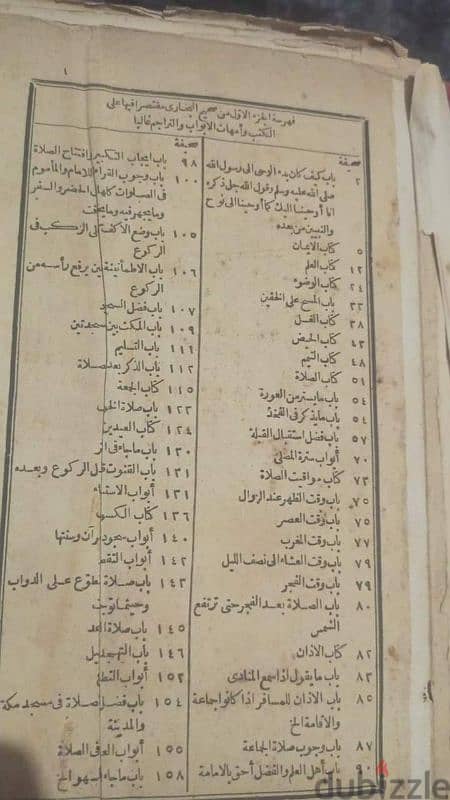 ١
فهرسة الجزء الاول من صحيح البخارى مقتصرا فيها على
الكتب وأمهات الابواب والتراجم غالبا
صحيفة
٢ باب كيف كان بدء الوحى الى رسول الله
صلى الله عليه وسلم وقول الله جل ذكره
انا أوحينا اليك كما أوحينا الى نوح
والنبيين من بعده
٥ كتاب الايمان
١٢ كتاب العلم
٢٤ كتاب الوضوء
٣٣ باب المسح على الخفين
٣٨ كتاب الغسل
٤٣ كتاب الحيض
٤٨ كتاب التيمم
٥١ كتاب الصلاة
٥٤ باب ما يستر من العورة
٥٤ باب ما يذكر فى الفخذ
٥٧ باب فضل استقبال القبلة
٧٠ أبواب سترة المصلى
٧٣ كتاب مواقيت الصلاة
٧٥ باب وقت الظهر عند الزوال
٧٥ باب وقت العصر
٧٧ باب وقت المغرب
٧٩ باب وقت العشاء الى نصف الليل
٧٩ باب وقت الفجر
٨٠ باب الصلاة بعد الفجر حتى ترتفع
الشمس
٨٢ كتاب الاذان
٨٣ باب ما يقول اذا سمع المنادى
٨٥ باب الاذان للمسافر اذا كانوا جماعة
والاقامة الخ
٨٧ باب وجوب صلاة الجماعة
٩٠ باب أهل العلم والفضل أحق بالامامة
صحيفة
٩٨ باب ايجاب التكبير وافتتاح الصلاة
١٠٠ باب وجوب القراءة للامام والمأموم
فى الصلوات كلها فى الحضر والسفر
وما يجهر فيه وما يخافت
١٠٥ باب وضع الاكف على الركب فى
الركوع
١٠٦ باب الاطمأنينة حين يرفع رأسه من
الركوع
١٠٧ باب فضل السجود
١٠٩ باب المكث بين سجدتين
١١١ باب التسليم
١١٢ باب الذكر بعد صلاة
١١٥ كتاب الجمعة
١٢٣ باب صلاة
١٢٤ كتاب العيدين
١٣٠ باب ما جاء فى
١٣١ باب القنوت قبل الركوع وبعده
١٣١ أبواب
١٣٦ كتاب
١٤٠ أبواب سجود القرآن وسنتها
١٤٢ أبواب
١٤٣ باب صلاة التطوع على الدواب
وحيثما توجهت
١٤٥ باب صلاة
١٤٦ باب التهجد بالليل
١٥٢ أبواب
١٥٤ باب فضل الصلاة فى مسجد مكة
والمدينة
١٥٥ أبواب العمل فى الصلاة
١٥٨ باب ما جاء فى السهو الخ
dubizzle